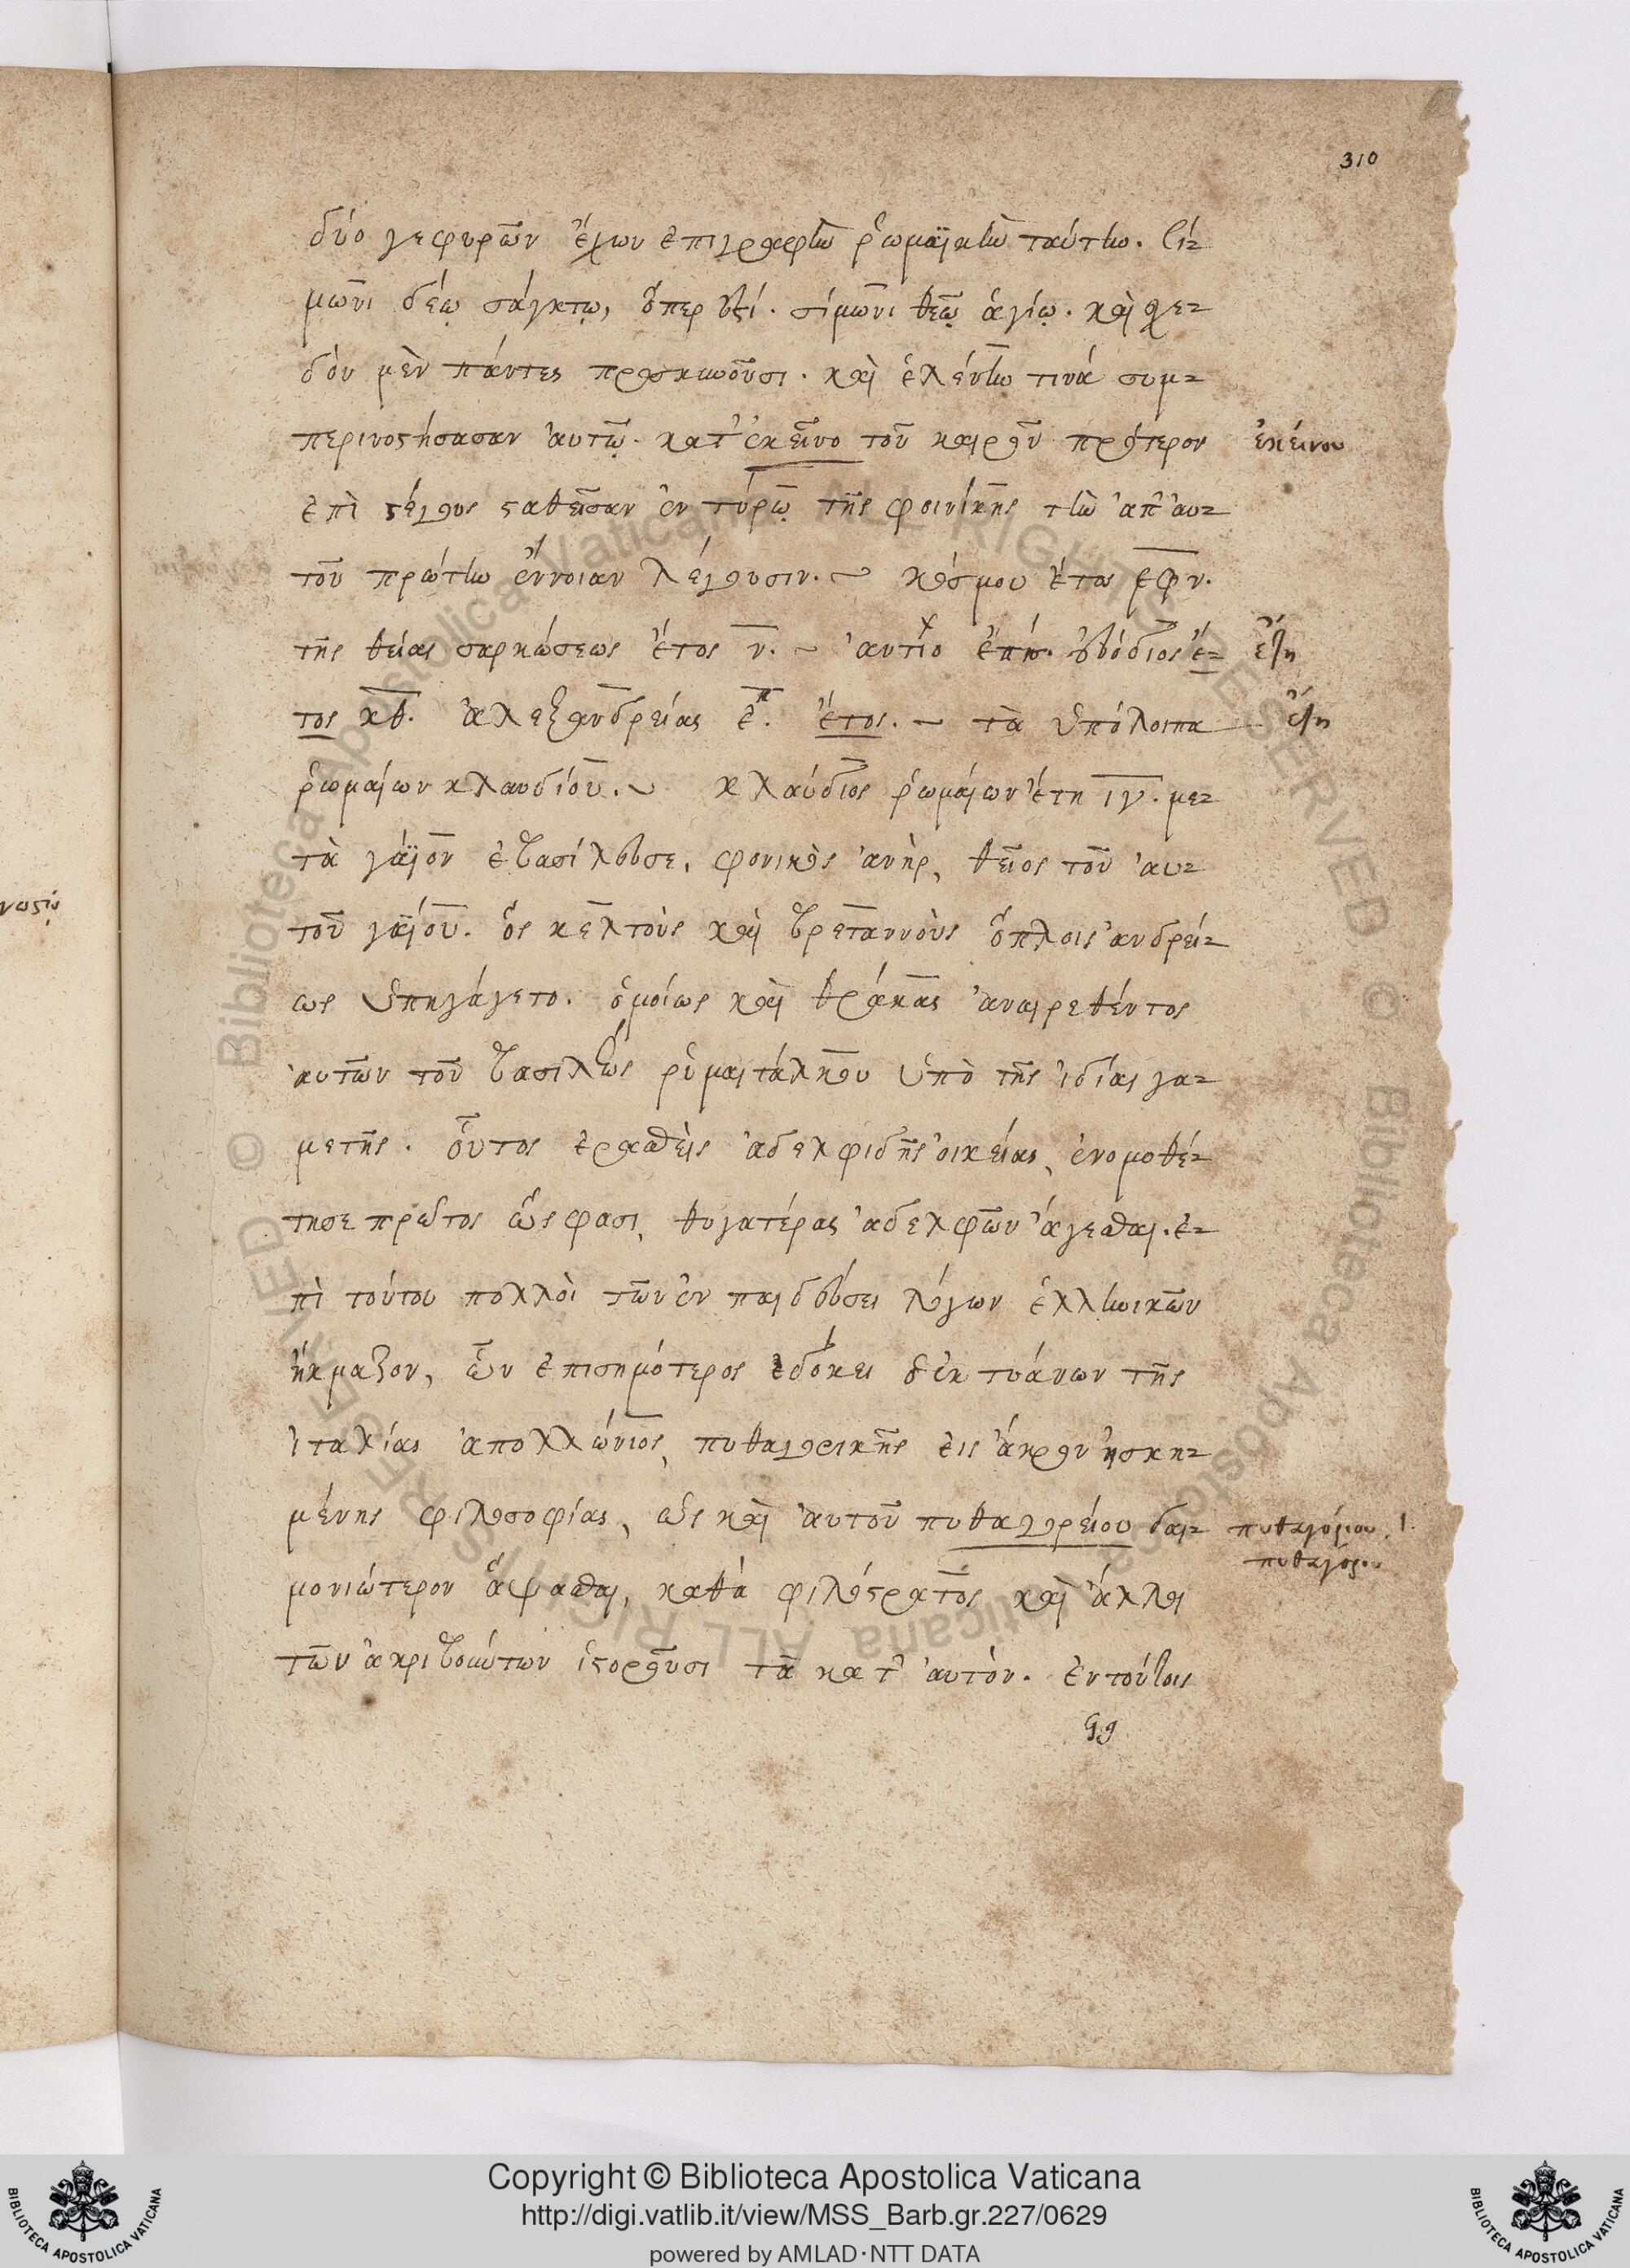 310
δύο γεφυρῶν ἔχων ἐπιγραφὴν ῥωμαϊκὴν ταύτην. Σί-
μωνι δέῳ σάγκτῳ, ὅπερ ἐστί. σίμωνι θεῷ ἁγίῳ. καὶ σχε-
δὸν μὲν πάντες προσκυνοῦσι. καὶ ἑλένην τινά συμ-
περινοστήσασαν αὐτῷ. κατ' ἐκεῖνο τοῦ καιροῦ πρότερον ἐκείνου
ἐπὶ τέγους σταθεῖσαν ἐν τύρῳ τῆς φοινίκης τὴν ἀπ' αὐ-
τοῦ πρώτην ἔννοιαν λέγουσιν. κόσμου ἔτος εφν.
τῆς θείας σαρκώσεως ἔτος ν. ἀντιο χ ἐπίσ. εὐόδιος ἔ- ἔτη
τος κθ. ἀλεξανδρείας ἐπ. ἔτος. τὰ ὑπόλοιπα ἔτη
ῥωμαίων κλαυδίου. κλαύδιος ῥωμαίων ἔτη ιγ. με-
τὰ γάϊον ἐβασίλευσε, φονικὸς ἀνὴρ, θεῖος τοῦ αὐ-
τοῦ γαΐου. ὃς κελτοὺς καὶ βρεταννοὺς ὅπλοις ἀνδρεί-
ως ὑπηγάγετο. ὁμοίως καὶ θρᾴκας ἀναιρεθέντος
αὐτῶν τοῦ βασιλέως ῥυμαιτάλκου ὑπὸ τῆς ἰδίας γα-
μετῆς. οὗτος ἐρασθεὶς ἀδελφιδῆς οἰκείας, ἐνομοθέ-
τησε πρῶτος ὥς φασι, θυγατέρας ἀδελφῶν ἄγεσθαι. ἐ-
πὶ τούτου πολλοὶ τῶν ἐν παιδεύσει λόγων ἑλληνικῶν
ἤκμαζον, ὧν ἐπισημότερος ἐδόκει ὁ ἐκ τυάνων τῆς
ἰταλίας ἀπολλώνιος, πυθαγορικῆς εἰς ἄκρον ἠσκη-
μένης φιλοσοφίας, ὡς καὶ αὐτοῦ πυθαγορείου δαι- πυθαγόριου. l.
πυθαγόρου
μονιώτερον ἅψασθαι, καθὰ φιλόστρατος καὶ ἄλλοι
τῶν ἀκριβούντων ἱστοροῦσι τὰ κατ' αὐτόν. ἐν τούτοις
Gg
νωσιν
Copyright © Biblioteca Apostolica Vaticana
http://digi.vatlib.it/view/MSS_Barb.gr.227/0629
powered by AMLAD·NTT DATA
BIBLIOTECA APOSTOLICA VATICANA
BIBLIOTECA APOSTOLICA VATICANA